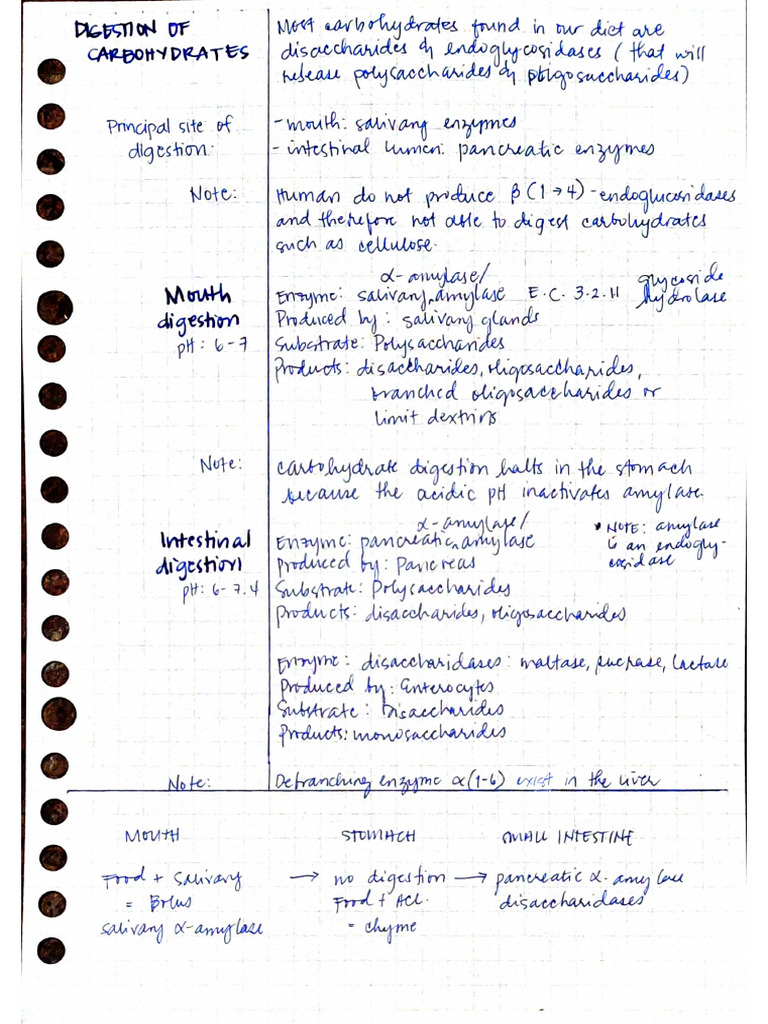 DIGESTION OF
CARBOHYDRATES
Most carbohydrates found in our diet are
disaccharides & endoglycosidases (that will
release polysaccharides & oligosaccharides)
Principal site of
digestion:
- mouth: salivary enzymes
- intestinal lumen: pancreatic enzymes
Note:
Human do not produce β(1→4)-endoglucosidases
and therefore not able to digest carbohydrates
such as cellulose.
Mouth
digestion
pH: 6-7
α-amylase/
Enzyme: salivary amylase E.C. 3.2.11 glycoside
hydrolase
Produced by: salivary glands
Substrate: Polysaccharides
Products: disaccharides, oligosaccharides,
branched oligosaccharides or
limit dextrins
Note:
carbohydrate digestion halts in the stomach
because the acidic pH inactivates amylase.
Intestinal
digestion
pH: 6-7.4
α-amylase/
Enzyme: pancreatic amylase
Produced by: Pancreas
Substrate: Polysaccharides
Products: disaccharides, oligosaccharides
* NOTE: amylase
is an endogly-
cosidase
Enzyme: disaccharidases: maltase, sucrase, lactase
Produced by: Enterocytes
Substrate: Disaccharides
Products: monosaccharides
Note:
Debranching enzyme α(1-6) exist in the liver
MOUTH
Food + salivary
= Bolus
salivary α-amylase
STOMACH
→ no digestion →
Food + HCl
= chyme
SMALL INTESTINE
pancreatic α-amylase
disaccharidases